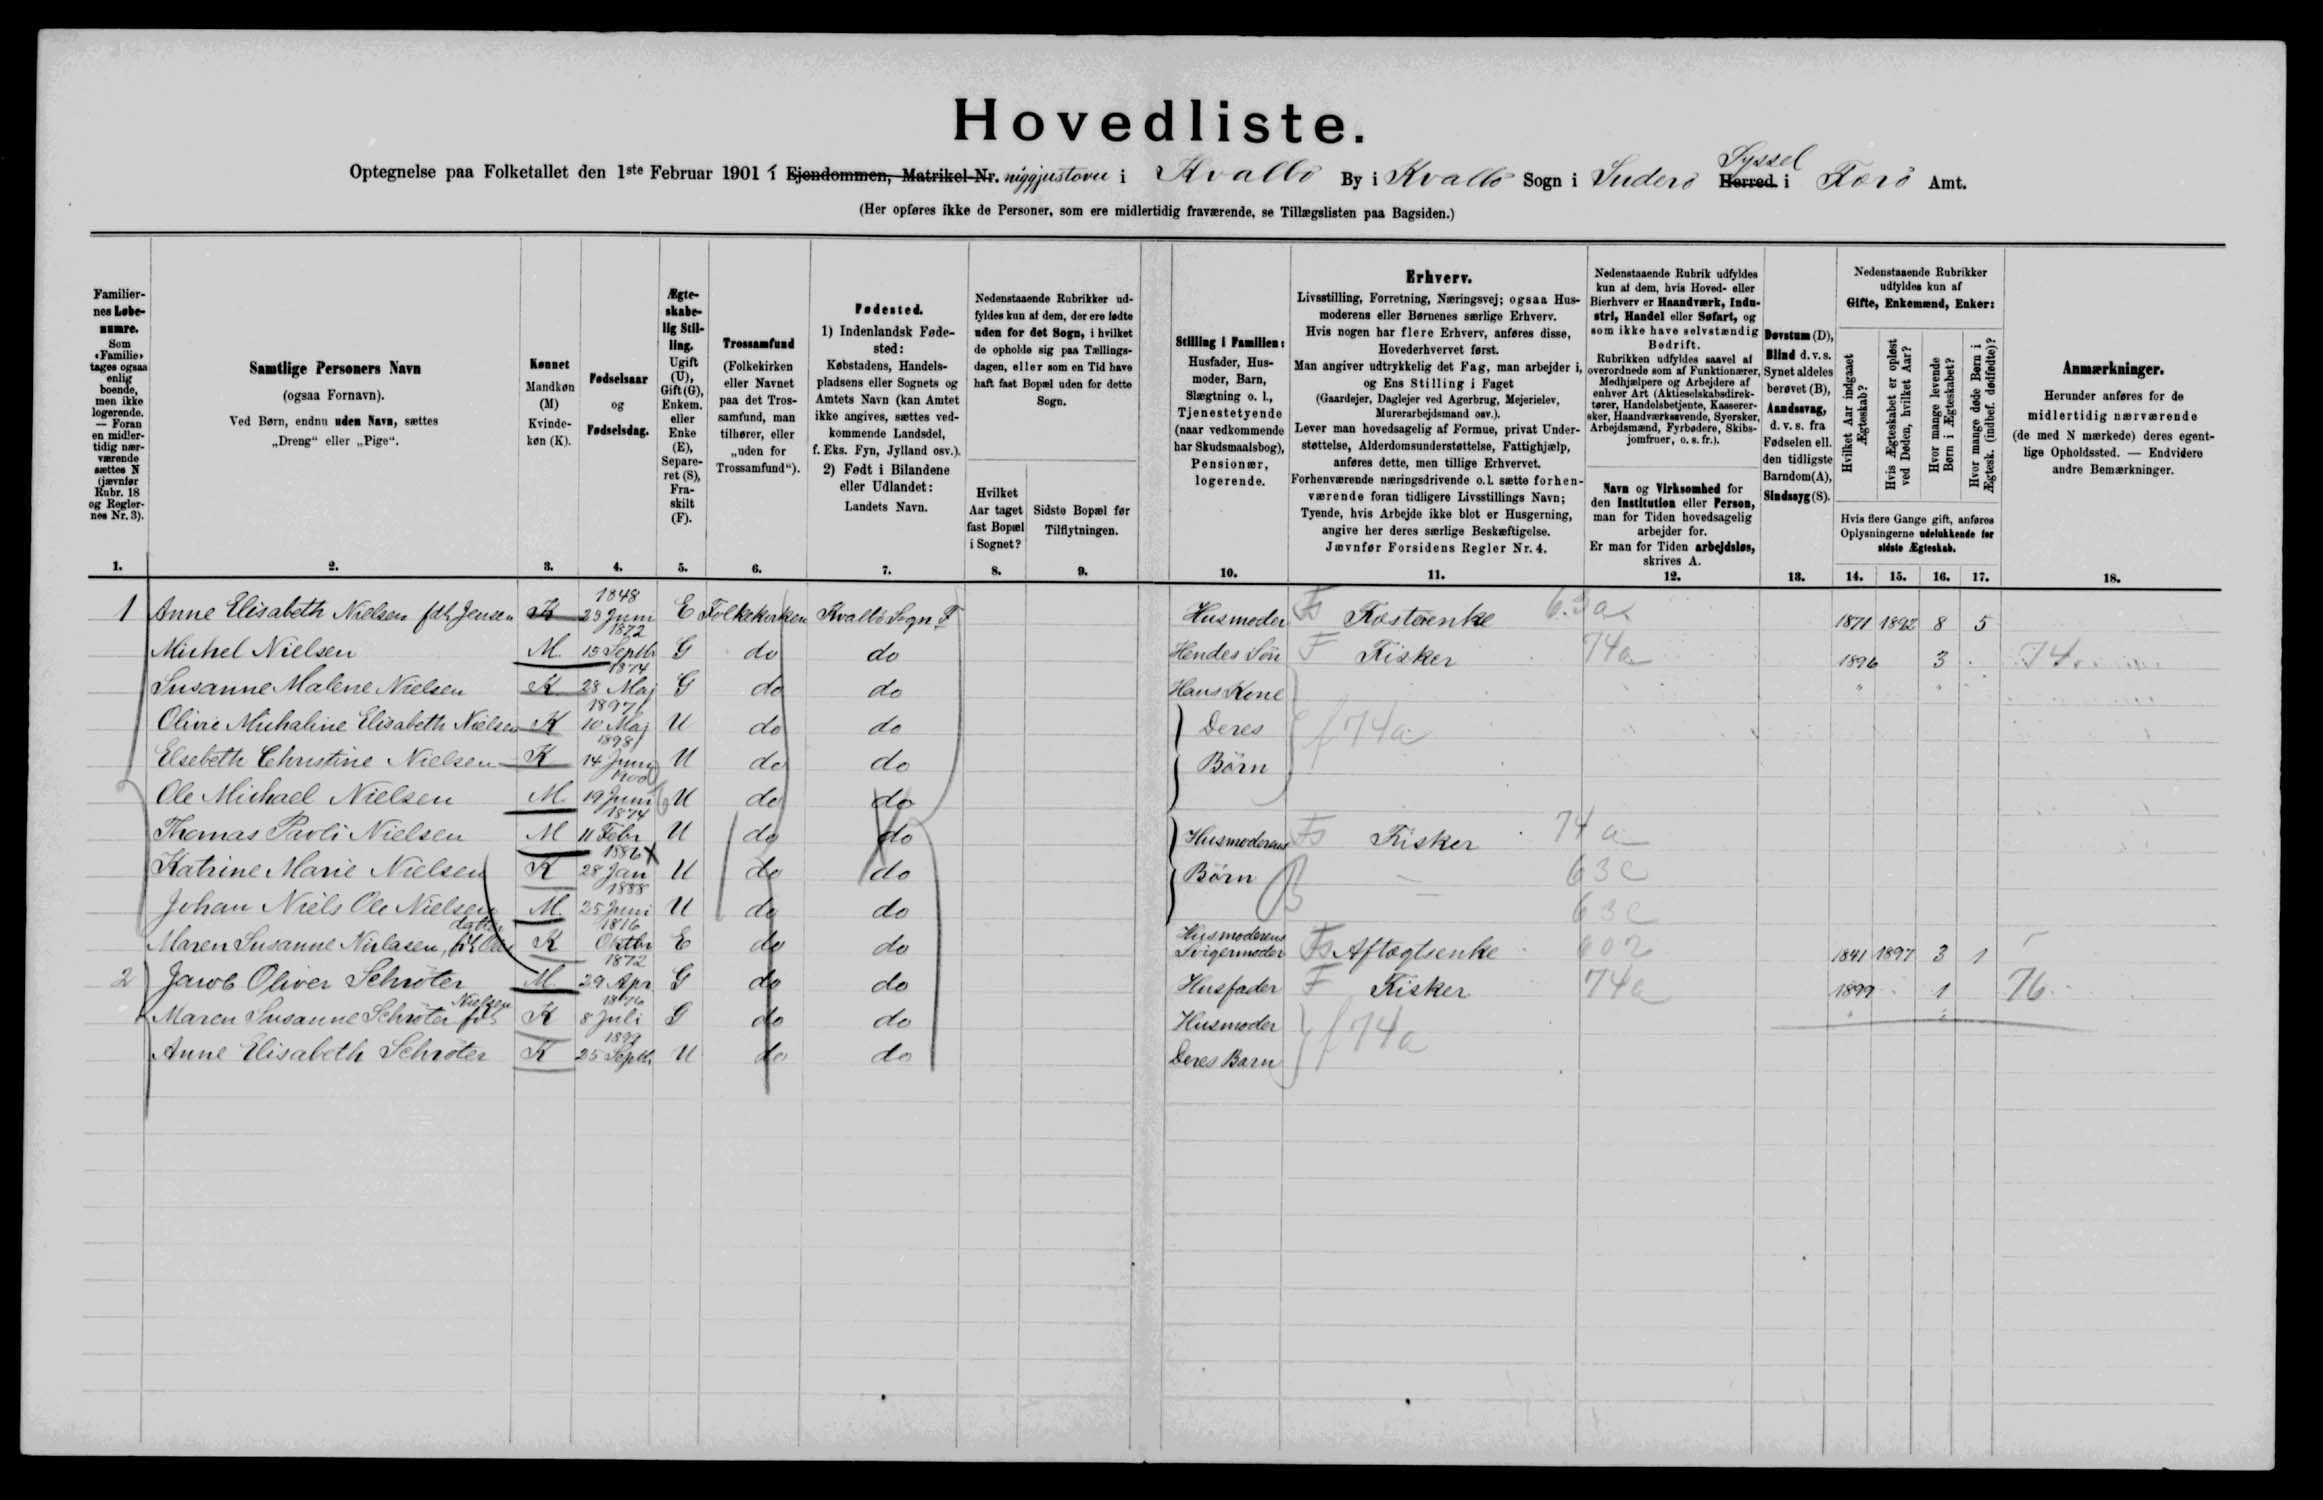 Hovedliste.
Optegnelse paa Folketallet den 1ste Februar 1901 i Ejendommen, Matrikel-Nr. niggjustovu i Kvalbö By i Kvalbö Sogn i Suderö Herred Syssel i Færö Amt.
(Her opføres ikke de Personer, som ere midlertidig fraværende, se Tillægslisten paa Bagsiden.)
Familiernes Løbenumre. Som «Familie» tages ogsaa enlig boende, men ikke logerende. — Foran en midlertidig nærværende sættes N (jævnfør Rubr. 18 og Reglernes Nr. 3).
Samtlige Personers Navn (ogsaa Fornavn). Ved Børn, endnu uden Navn, sættes „Dreng“ eller „Pige“.
Kønnet Mandkøn (M) Kvindekøn (K).
Fødselsaar og Fødselsdag.
Ægteskabelig Stilling. Ugift (U), Gift (G), Enkem. eller Enke (E), Separeret (S), Fraskilt (F).
Trossamfund (Folkekirken eller Navnet paa det Trossamfund, man tilhører, eller „uden for Trossamfund“).
Fødested. 1) Indenlandsk Fødested: Købstadens, Handelspladsens eller Sognets og Amtets Navn (kan Amtet ikke angives, sættes vedkommende Landsdel, f. Eks. Fyn, Jylland osv.). 2) Født i Bilandene eller Udlandet: Landets Navn.
Nedenstaaende Rubrikker udfyldes kun af dem, der ere fødte uden for det Sogn, i hvilket de opholde sig paa Tællingsdagen, eller som en Tid have haft fast Bopæl uden for dette Sogn.
Hvilket Aar taget fast Bopæl i Sognet?
Sidste Bopæl før Tilflytningen.
Stilling i Familien: Husfader, Husmoder, Barn, Slægtning o. l., Tjenestetyende (naar vedkommende har Skudsmaalsbog), Pensionær, logerende.
Erhverv.
Livsstilling, Forretning, Næringsvej; ogsaa Husmoderens eller Børnenes særlige Erhverv.
Hvis nogen har flere Erhverv, anføres disse, Hovederhvervet først.
Man angiver udtrykkelig det Fag, man arbejder i, og Ens Stilling i Faget
(Gaardejer, Daglejer ved Agerbrug, Mejerielev, Murerarbejdsmand osv.).
Lever man hovedsagelig af Formue, privat Understøttelse, Alderdomsunderstøttelse, Fattighjælp, anføres dette, men tillige Erhvervet.
Forhenværende næringsdrivende o. l. sætte forhenværende foran tidligere Livsstillings Navn;
Tyende, hvis Arbejde ikke blot er Husgerning, angive her deres særlige Beskæftigelse.
Jævnfør Forsidens Regler Nr. 4.
Nedenstaaende Rubrik udfyldes kun af dem, hvis Hoved- eller Bierhverv er Haandværk, Industri, Handel eller Søfart, og som ikke have selvstændig Bedrift.
Rubrikken udfyldes saavel af overordnede som af Funktionærer, Medhjælpere og Arbejdere af enhver Art (Aktieselskabsdirektører, Handelsbetjente, Kasserersker, Haandværkssvende, Syersker, Arbejdsmænd, Fyrbødere, Skibsjomfruer, o. s. fr.).
Navn og Virksomhed for den Institution eller Person, man for Tiden hovedsagelig arbejder for.
Er man for Tiden arbejdsløs, skrives A.
Døvstum (D), Blind d. v. s. Synet aldeles berøvet (B), Aandssvag, d. v. s. fra Fødselen ell. den tidligste Barndom (A), Sindssyg (S).
Nedenstaaende Rubrikker udfyldes kun af Gifte, Enkemænd, Enker:
Hvilket Aar indgaaet Ægteskab?
Hvis Ægteskabet er opløst ved Døden, hvilket Aar?
Hvor mange levende Børn i Ægteskabet?
Hvor mange døde Børn i Ægtesk. (indbef. dødfødte)?
Hvis flere Gange gift, anføres Oplysningerne udelukkende for sidste Ægteskab.
Anmærkninger. Herunder anføres for de midlertidig nærværende (de med N mærkede) deres egentlige Opholdssted. — Endvidere andre Bemærkninger.
1. 2. 3. 4. 5. 6. 7. 8. 9. 10. 11. 12. 13. 14. 15. 16. 17. 18.
1 Anne Elisabeth Nielsen fdt Jensen K 1848 23 Juni E Folkekirken Kvalbö Sogn F Husmoder Fs Fæsteenke 63a 1871 1892 8 5
Michel Nielsen M 1872 15 Septbr G do do Hendes Sön F Fisker 74a 1896 3 74
Susanne Malene Nielsen K 1874 28 Maj G do do Hans Kone " "
Olivie Michaline Elisabeth Nielsen K 1897 10 Maj U do do Deres f 74a
Elsebeth Christine Nielsen K 1898 14 Juni U do do Börn
Ole Michael Nielsen M 1900 19 Juni U do do
Thomas Povli Nielsen M 1874 11 Febr U do do Husmoderens Fs Fisker 74a
Katrine Marie Nielsen K 1886 28 Jan U do do Börn 63c
Johan Niels Ole Nielsen M 1888 25 Juni U do do 63c
Maren Susanne Nielsen, fdt datter K 1816 Oktbr E do do Husmoderens Svigermoder Fs Aftægtsenke 602 1841 1897 3 1
2 Jacob Oliver Schröter M 1872 29 Apr G do do Husfader F Fisker 74a 1899 1 76
Maren Susanne Schröter fdt Nielsen K 1876 8 Juli G do do Husmoder f 74a " "
Anne Elisabeth Schröter K 1899 25 Septb U do do Deres Barn